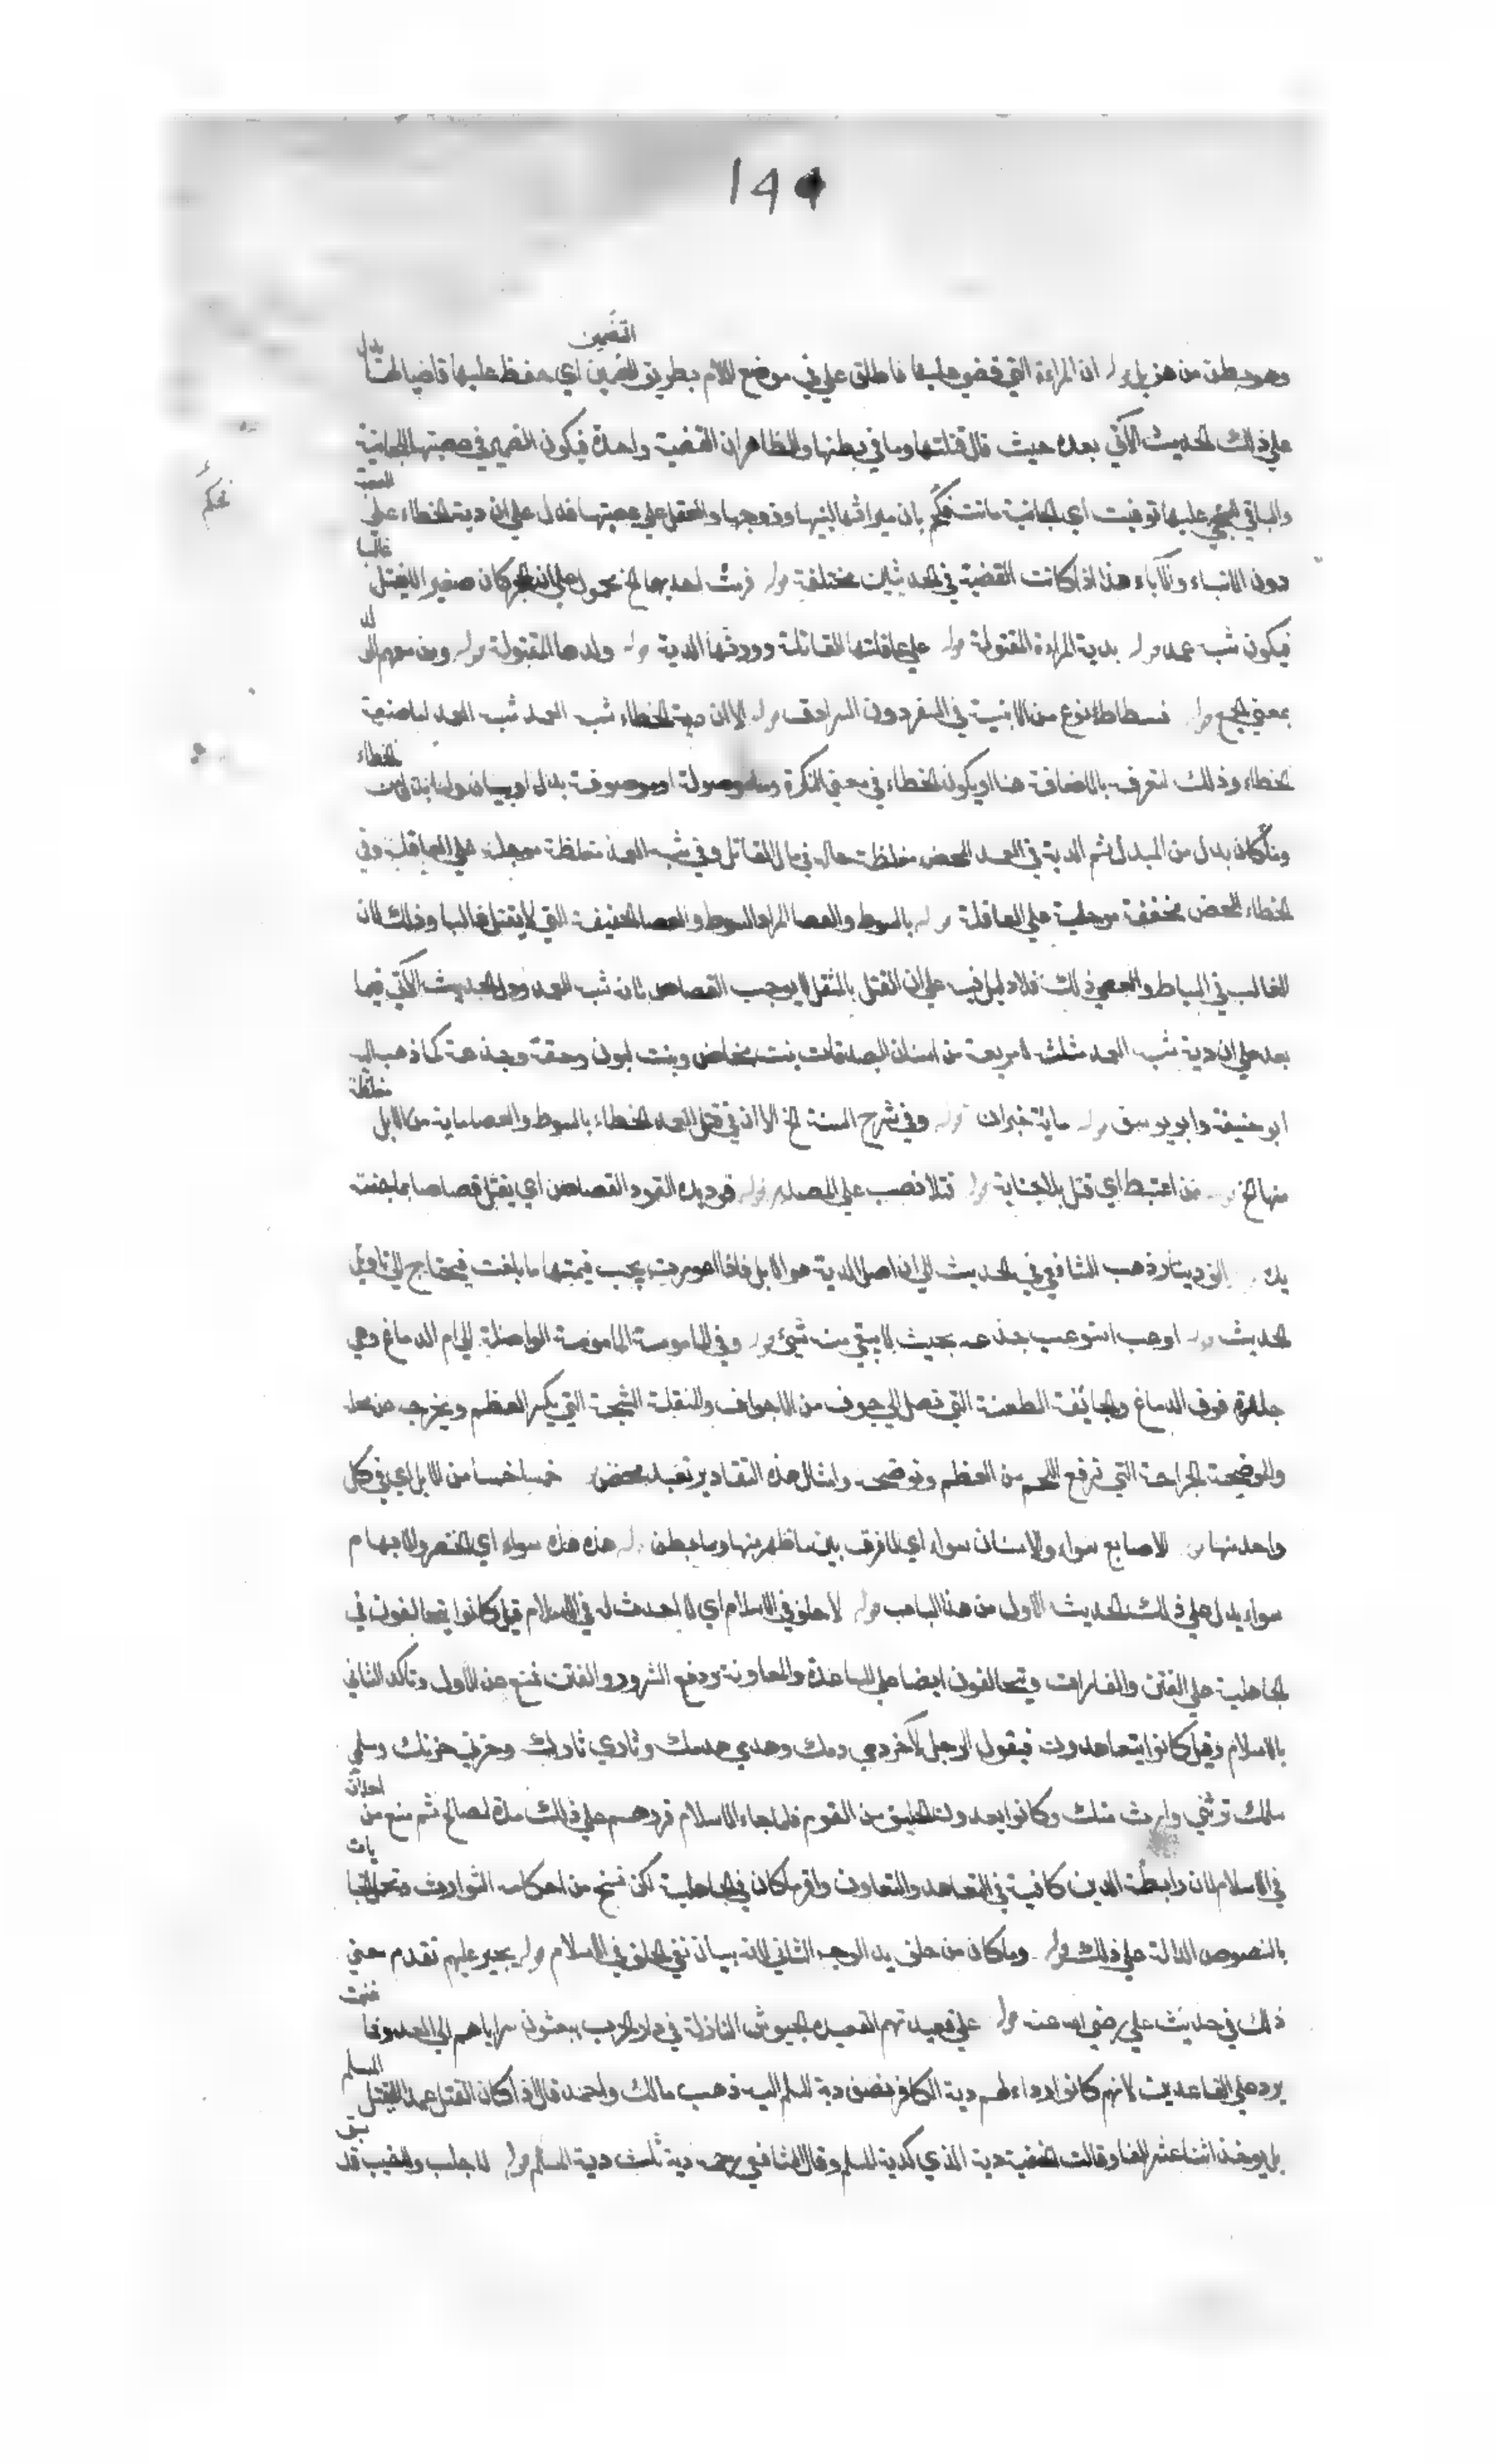 ١٩٩
التضمين
وهو بطن من هذيل قوله ان المراءة التي قضي عليها فاطلق علي في موضع اللام بطريق التضمين اي حفظ عليها قاضيا لها يدل
علي ذلك الحديث الاتي بعده حيث قال قتلتها وما في بطنها والظاهر ان القضية واحدة فيكون الضمير في عصبتها للجانية
والباقي للمجني عليها توفيت اي الجانية ماتت فحكم بان ميراثها لبنيها وزوجها والعقل علي عصبتها فدل علي ان دية الخطاء علي العصبة
فحكم
دون الابناء والآباء هذا اذا كانت القضية في الحديثين مختلفة قوله فرمت احديهما الخ محمول علي ان الحجر كان صغيرا لا يقتل غالبا
فيكون شبه عمد قوله بدية المراءة المقتولة قوله علي عاقلتها القاتلة وورثها الدية قوله ولدها المقتولة قوله ومن معهم الولد
بمعني الجمع قوله فسطاط نوع من الابنية في السفر دون السرادق قوله الا ان دية الخطاء شبه العمد شبه العمد
الخطاء وذلك لتعرف بالاضافة هنا او يكون الخطاء في معني النكرة وما موصولة او موصوفة بدل او بيان
وما كان بدل من المبدل ثم الدية في العمد المحض مغلظة حاله في مال القاتل وفي شبه العمد مغلظة موجلة علي العاقلة وفي
الخطاء المحض مخففة موجلة علي العاقلة قوله بالسوط والعصا المراد السوط والعصا الخفيفة التي لا يقتل غالبا وذلك لان
الغالب في السياط والعصي ذلك فلا دليل فيه علي ان القتل بالمثقل لا يوجب القصاص فانه شبه العمد ودل الحديث الآتي فيما
بعد علي ان دية شبه العمد مثلث لا مربعة من اسنان الصدقات بنت مخاض وبنت لبون وحقة وجذعة كما ذهب اليه
ابو حنيفة وابو يوسف قوله ماية خبر ان قوله وفي شرح السنة الخ الا ان في قتل العمد الخطاء بالسوط والعصا ماية من الابل مغلظة
منها الخ قوله من اعتبط اي قتل بلا جناية قوله قتلا نصب علي المصدر قوله قود يده القود القصاص اي يقتل قصاصا بما جنت
يده الف دينار ذهب الشافعي في الحديث الي ان اصل الدية هو الابل فاذا اعوزت يجب قيمتها ما بلغت فيحتاج الي تاويل
الحديث قوله اوعب استوعب جذعه بحيث لا يبقي منه شيئ قوله وفي المامومة المامومة الواصلة الي ام الدماغ وهي
جلدة فوق الدماغ والجائفة الطعنة التي تصل الي جوف من الاجواف والمنقلة الشجة التي يكسر العظم ويخرج عن محله
والموضحة الجراحة التي ترفع اللحم من العظم وتوضحه وامثال هذه التقادير تعبد محض قوله خمسا خمسا من الابل اي في كل
واحد منها قوله الاصابع سواء والاسنان سواء اي لا فرق بين ما ظهر منها وما بطن قوله هذه هذه سواء اي الخنصر والابهام
سواء يدل علي ذلك الحديث الاول من هذا الباب قوله لا حلف في الاسلام اي لا احدث له في الاسلام قيل كانوا يتحالفون في
الجاهلية علي الفتن والغارات ويتحالفون ايضا علي المساعدة والمعاونة ودفع الشرور والفتن فمنع عن الاول وتاكد الثاني
بالاسلام وقيل كانوا يتعاهدون فيقول الرجل لآخر دمي دمك وهدمي هدمك وثاري ثارك وحربي حربك وسلمي
سلمك ترثني وارثك وكانوا يعدون الحليف من القوم فلما جاء الاسلام قررهم علي ذلك مدة لمصالح ثم منع من احداثه
في الاسلام لان رابطة الدين كافية في التعاهد والتعاون واقر ما كان في الجاهلية لكن نسخ من احكامه التوارث
بالنصوص الدالة علي ذلك قوله وما كان من حلف يد الوجه الثاني لانه بيان نفي الحلف في الاسلام قوله يجير عليهم تقدم معني
ذلك في حديث علي رضي الله عنه قوله علي قعيدتهم القعيدة الجيوش النازلة في دار الحرب يبعثون سراياهم الي العدو فما غنمت
يرد علي القاعدين لانهم كانوا رداء لهم دية الكافر نصف دية المسلم اليه ذهب مالك واحمد قال اذا كان القتل عمدا لا يقتل المسلم
بل يوخذ اثنا عشر الفا وقالت الحنفية دية الذمي كدية المسلم وقال الشافعي رحمه دية ثلث دية المسلم قوله لا جلب ولا جنب قد سبق